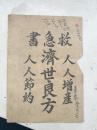 救急書
人人增產
濟世良方
人人節約